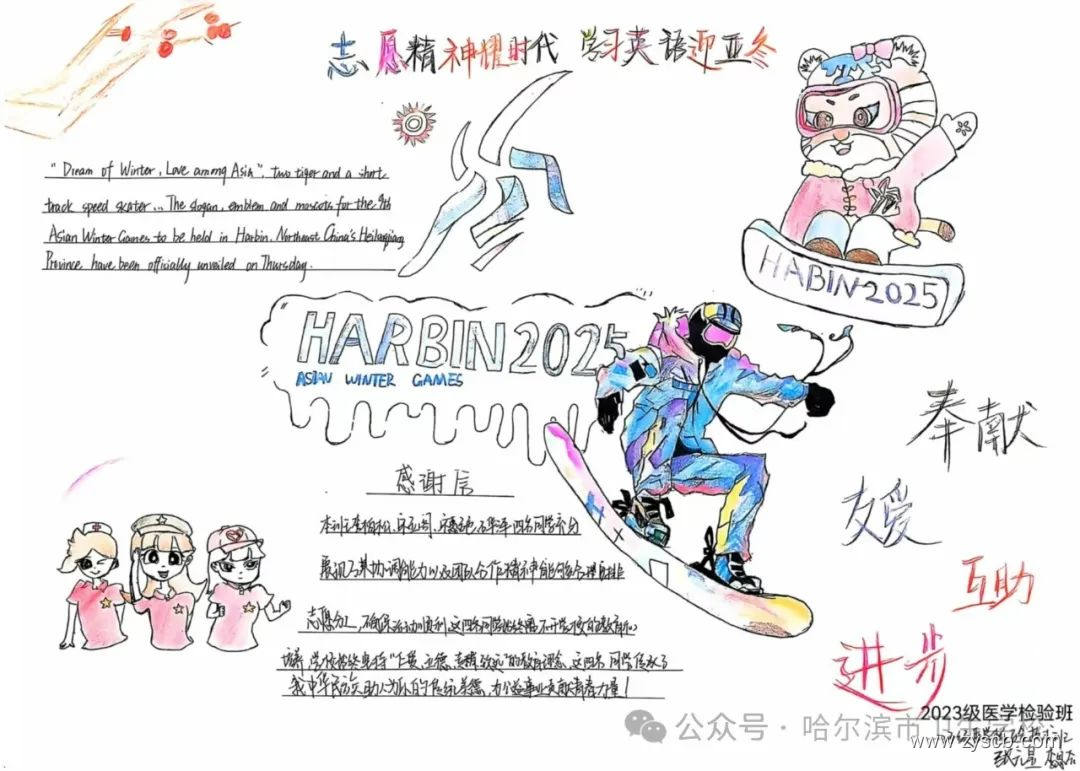 志愿精神耀时代 学习英语迎亚冬
"Dream of Winter, Love among Asia", two tiger and a short
track speed skater... The slogan, emblem and mascots for the 9th
Asian Winter Games to be held in Harbin, Northeast China's Heilongjiang
Province have been officially unveiled on Thursday.
HABIN 2025
HARBIN 2025
ASIAN WINTER GAMES
奉献
友爱
互助
进步
感谢信
四名同学充分
展现了其协调能力以及团队合作精神能够合理
志愿分工,确保活动顺利,这四名同学
培养,学校
我中华民族助人为乐的传统美德,为公益事业贡献青春力量!
2023级医学检验班
公众号·哈尔滨市卫生学校
www.zyscb.com